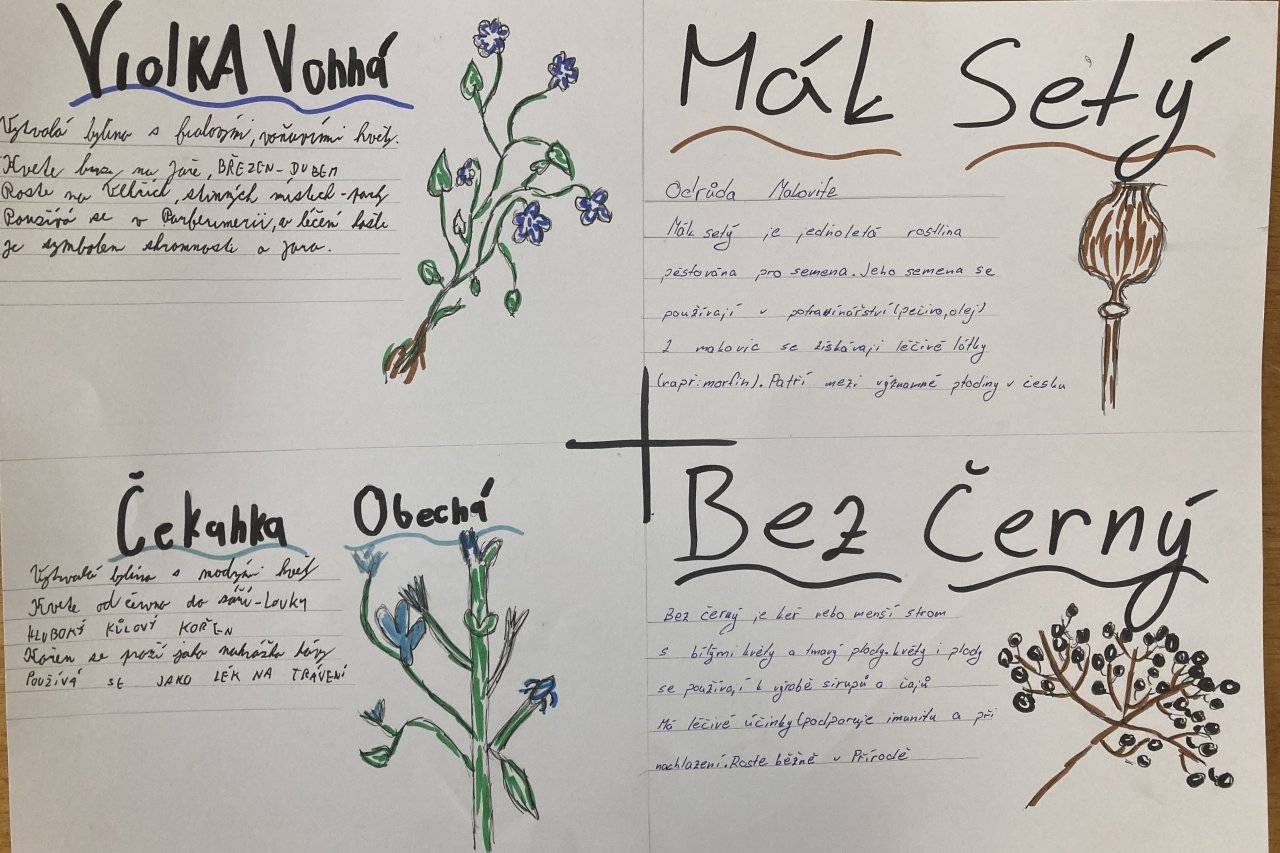 Violka Vonná
Vytrvalá bylina s fialovými, voňavými květy.
Kvete brzy na jaře, BŘEZEN - DUBEN
Roste na vlhkých, stinných místech - parky
Používá se v Parferumerii, a léčení kašle
je symbolem skromnosti a jara.
Mák Setý
Odrůda Makovite
Mák setý je jednoletá rostlina
pěstována pro semena. Jeho semena se
používají v potravinářství (pečivo, olej)
Z makovic se získávají léčivé látky
(např. morfin). Patří mezi významné plodiny v česku
Čekanka Obecná
Vytrvalá bylina s modrými květy
Kvete od června do září - Louky
HLUBOKÝ KŮLOVÝ KOŘEN
Kořen se praží jako nahrážka kávy
POUŽÍVÁ SE JAKO LÉK NA TRÁVENÍ
Bez Černý
Bez černý je keř nebo menší strom
s bílými květy a tmavý plody. květy i plody
se používají k výrobě sirupů a čajů
Má léčivé účinky (podporuje imunitu a při
nachlazení. Roste běžně v Přírodě